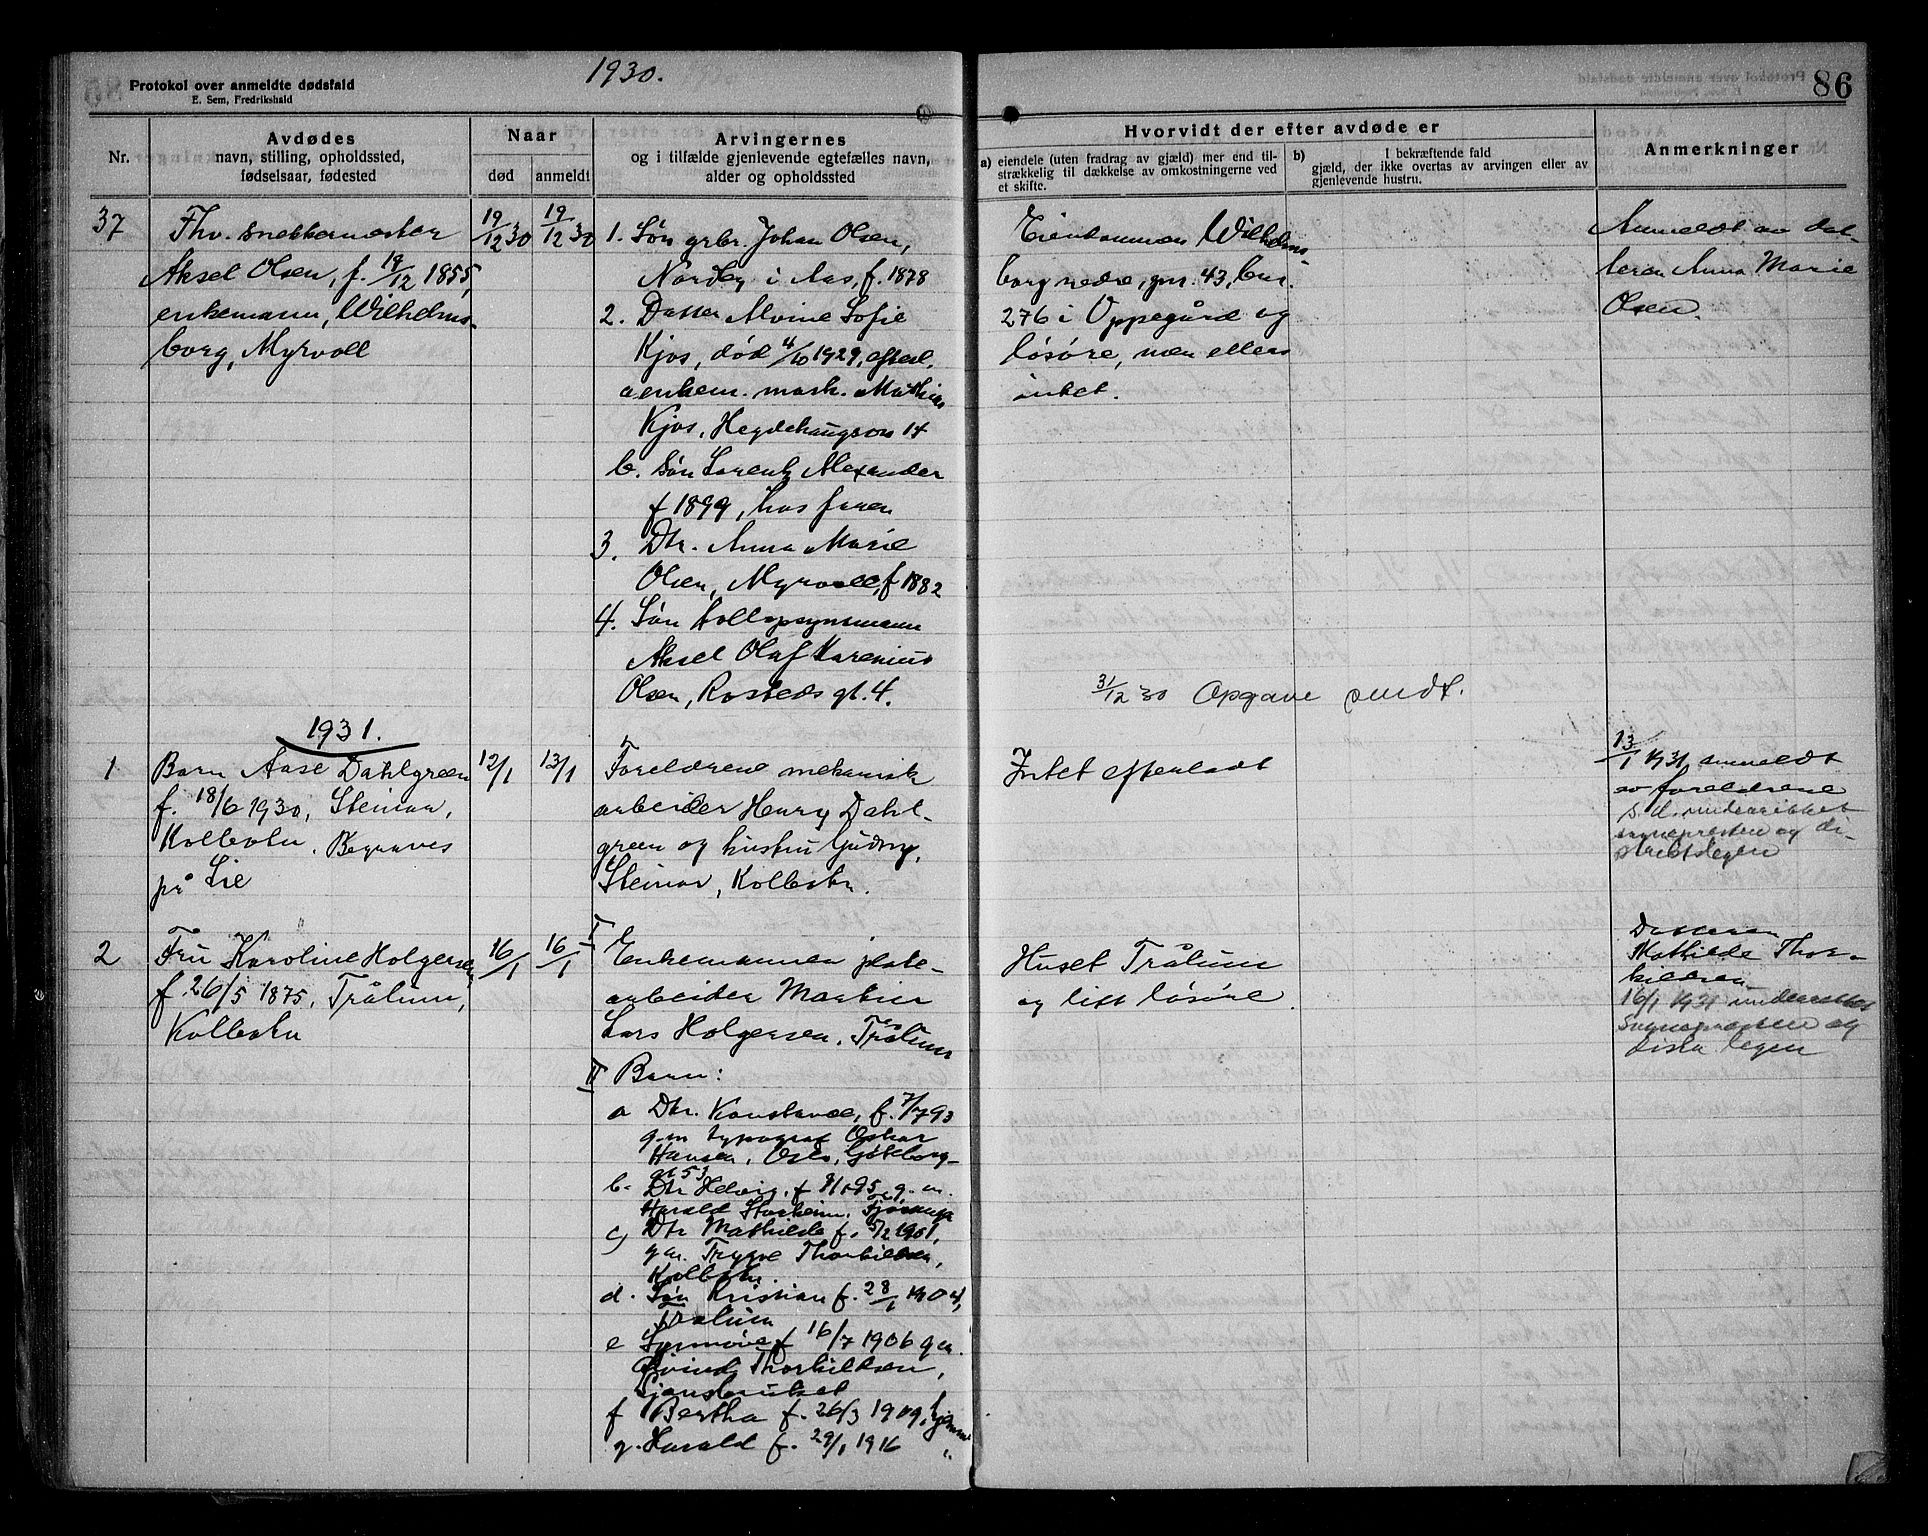 1930.
86
Protokol over anmeldte dødsfald
E. Sem, Fredrikshald
Nr.
Avdødes
navn, stilling, opholdssted,
fødselsaar, fødested
Naar
død
anmeldt
Arvingernes
og i tilfælde gjenlevende egtefælles navn,
alder og opholdssted
Hvorvidt der efter avdøde er
a) eiendele (uten fradrag av gjæld) mer end til-
strækkelig til dækkelse av omkostningerne ved
et skifte.
b) I bekræftende fald
gjæld, der ikke overtas av arvingen eller av
gjenlevende hustru.
Anmerkninger
37
Fhv. snekkermester
Aksel Olsen, f. 19/12 1855,
enkemann, Wilhelms-
borg, Myrvoll
19/12 30
19/12 30
1. Søn grbr. Johan Olsen,
Nordby i Aas, f. 1878
2. Datter Alvine Sofie
Kjos, død 4/10 1929, efterl.
a enkem. mask. Mathias
Kjos, Hegdehaugsvn 14
b. søn Lorentz Alexander
f 1899, hos faren
3. Dtr. Anna Marie
Olsen, Myrvoll, f 1882
4. Søn
Aksel Olaf Karenius
Olsen, Rosteds gt. 4.
Eiendommen Wilhelms-
borg nedre, gnr. 43, bnr.
276 i Oppegård og
løsøre, men ellers
intet.
31/12 30 Opgave sendt.
Anmeldt av dat-
teren Anna Marie
Olsen.
1931.
1
Barn Aase Dahlgreen
f. 18/6 1930, Steinar,
Kolbotn. Begraves
på Lie
12/1
13/1
Foreldrene mekanisk
arbeider Henry Dahl-
green og hustru Gudny,
Steinar, Kolbotn.
Intet efterladt
13/1 1931 anmeldt
av foreldrene
s. d. underrettet
sognepresten og di-
striktslegen
2
Fru Karoline Holgersen
f. 26/5 1875, Tråtun,
Kolbotn
16/1
16/1
I
Enkemannen plate-
arbeider Martin
Lars Holgersen, Tråtun
II Barn:
a Dtr. Konstanse, f. 7/7 93
g.m typograf Oskar
Hansen, Oslo, Göteborg-
gt 53
b. Dtr Helvig, f 95, g. m.
Harald
c) Dtr Mathilde f. 5/2 1901,
g m. Trygve Thorkildsen,
Kolbotn.
d. Søn Kristian f. 28/1 1904,
Tråtun
e Synnøve f 16/7 1906 g m.
Øivind Thorkildsen,
Ljansbruket
f Bertha f. 26/3 1909, hjemme
g. Harald f. 29/1 1916 "
Huset Tråtun
og litt løsøre.
Datteren
Mathilde Thor-
kildsen
16/1 1931 underrettet
Sogneprestene og
distr. legen